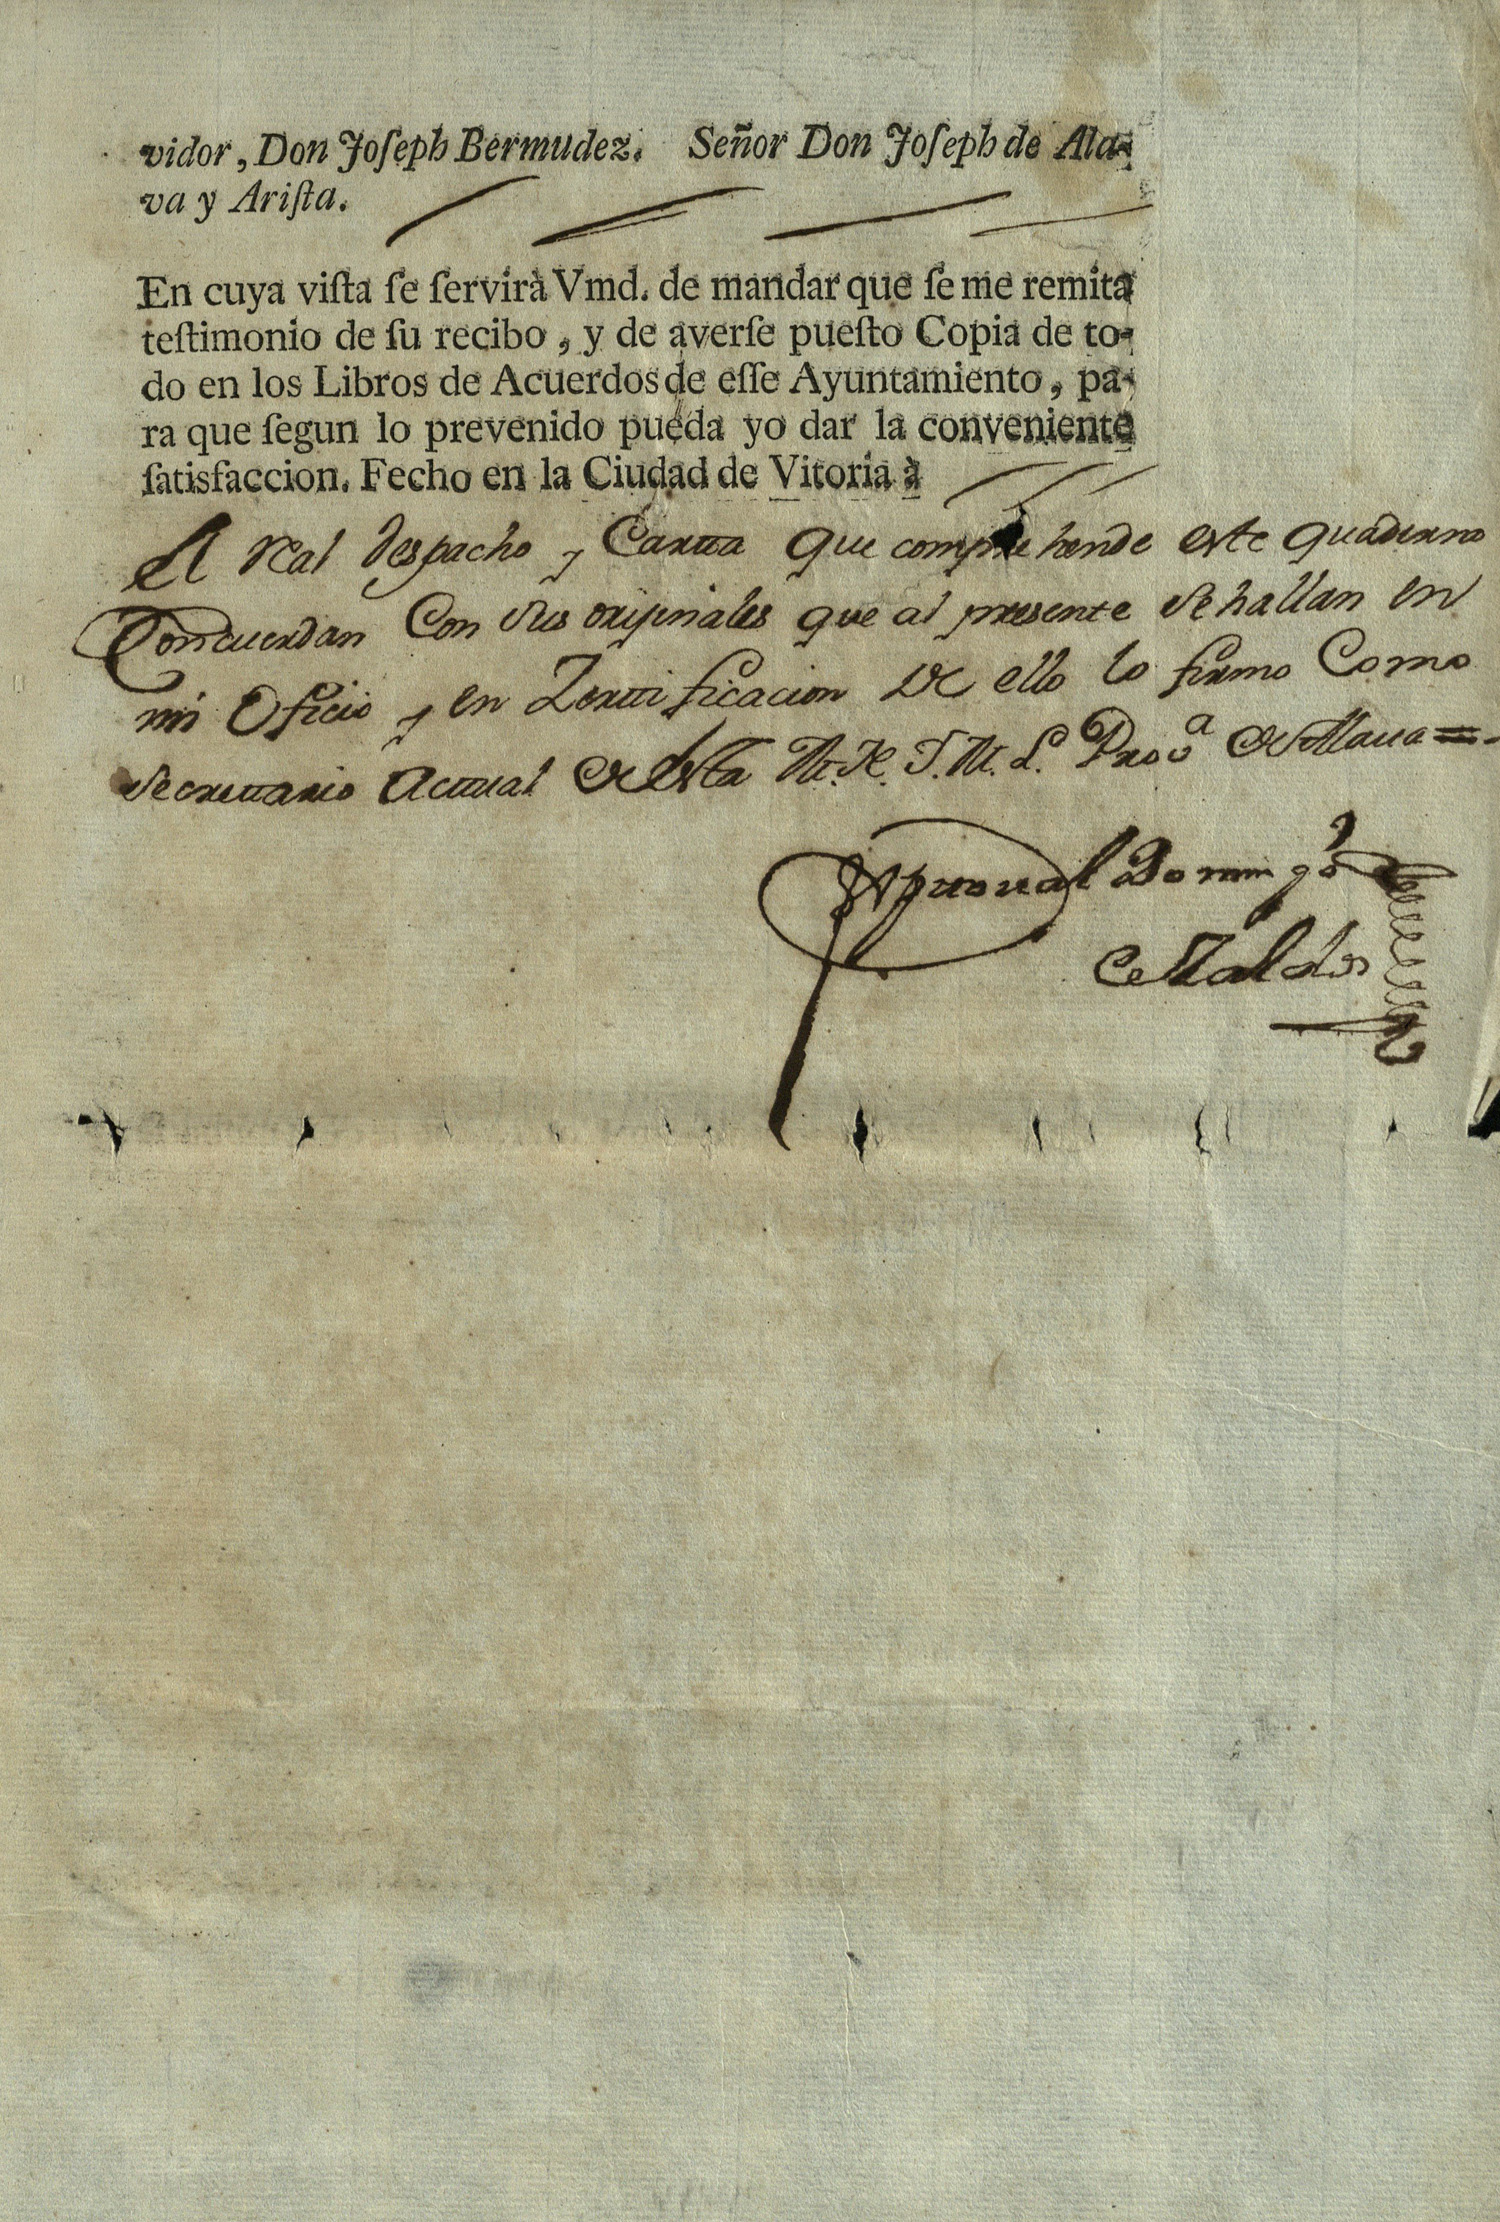 vidor, Don Joſeph Bermudez. Señor Don Joſeph de Ala-
va y Ariſta.
En cuya viſta ſe ſervirà Vmd. de mandar que ſe me remita
teſtimonio de ſu recibo, y de averſe pueſto Copia de to-
do en los Libros de Acuerdos de eſſe Ayuntamiento, pa-
ra que ſegun lo prevenido pueda yo dar la conveniente
ſatisfaccion. Fecho en la Ciudad de Vitoria à
El Real despacho y Carta que comprehende este quaderno
Concuerdan Con sus originales que al presente se hallan en
mi Oficio y en Zertificacion de ello lo firmo Como
Secretario Actual de esta M. N. Y. M. L. Provª de Alava =
Domingo